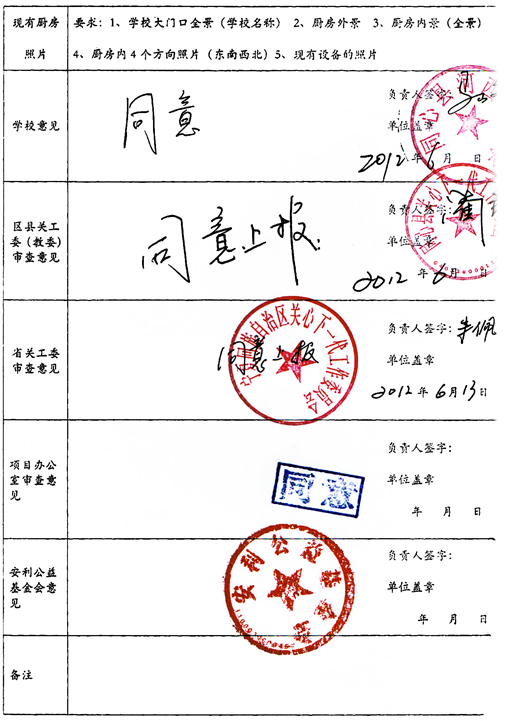 现有厨房
照片
要求：1、学校大门口全景（学校名称） 2、厨房外景 3、厨房内景（全景）
4、厨房内4个方向照片（东南西北）5、现有设备的照片
学校意见
同意
负责人签字：
单位盖章
2012年6月 日
同心县
区县关工
委（教委）
审查意见
同意上报
负责人签字：
单位盖章
2012年6月 日
同心县关心下一代工
省关工委
审查意见
同意上报
宁夏回族自治区关心下一代工作委员会
负责人签字：
单位盖章
2012年6月13日
项目办公
室审查意
见
同意
负责人签字：
单位盖章
年 月 日
安利公益
基金会意
见
安利公益基金会
负责人签字：
单位盖章
年 月 日
备注